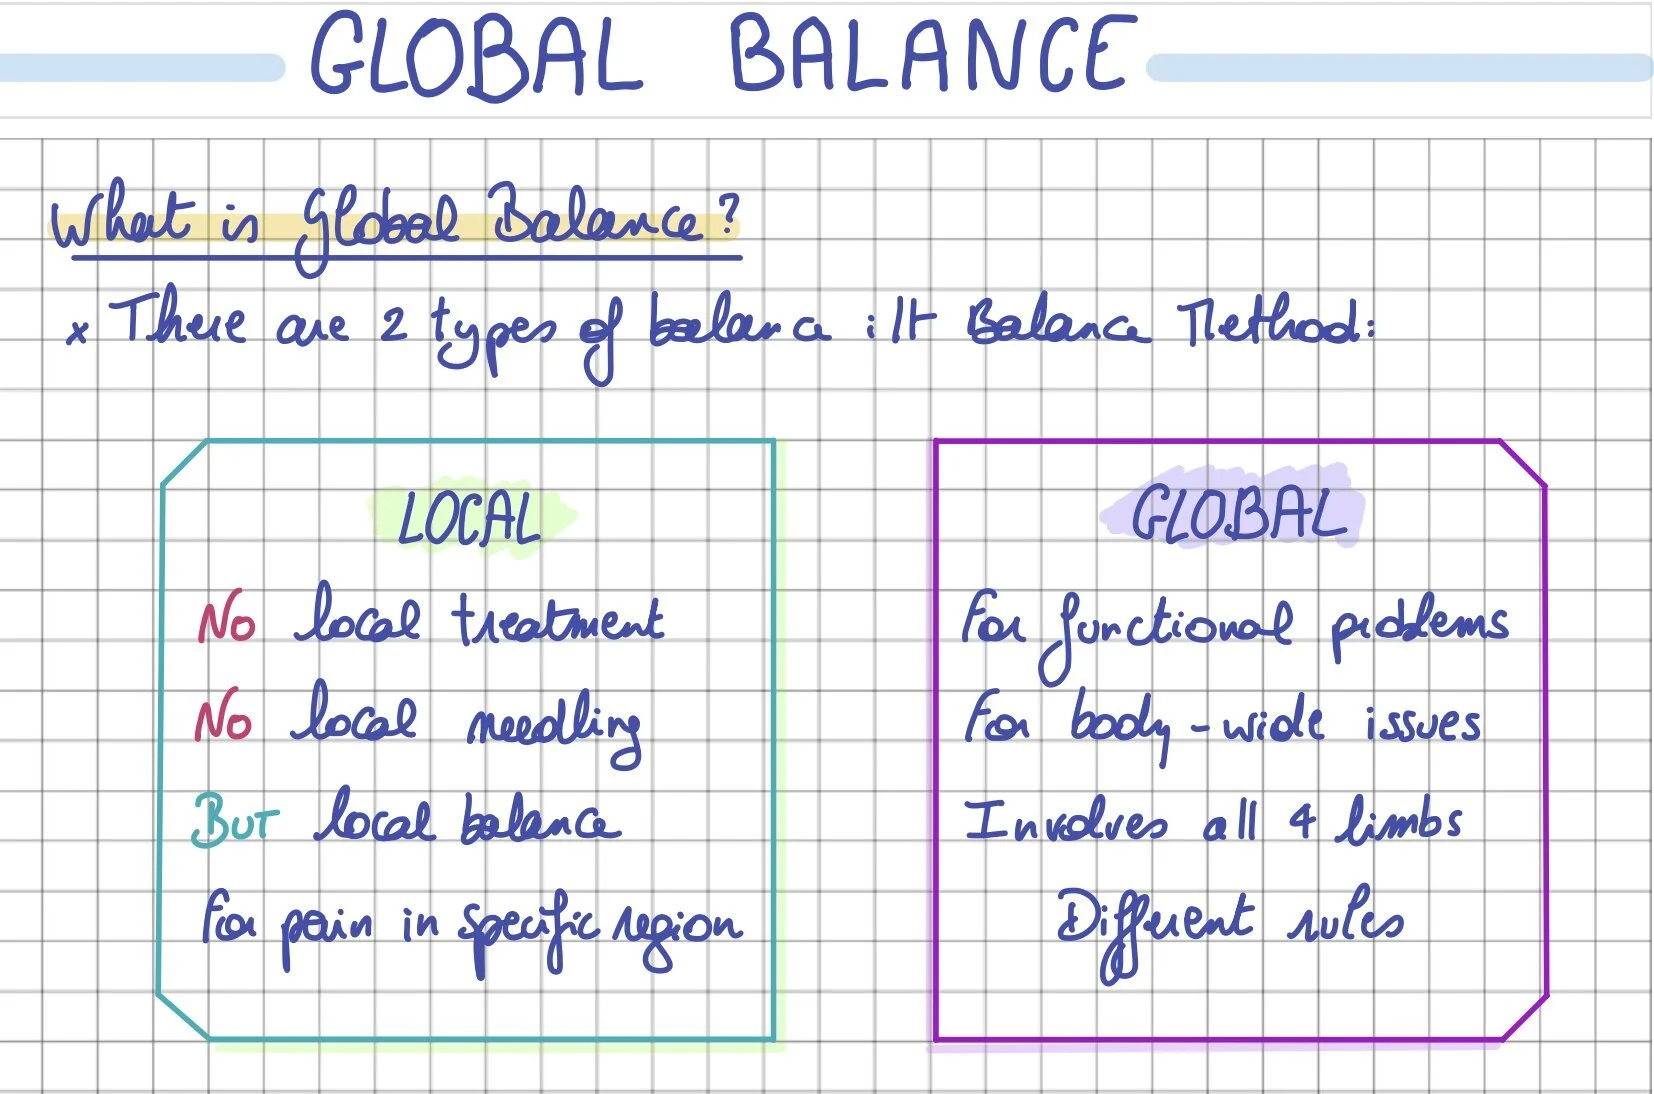 GLOBAL BALANCE
What is Global Balance?
x There are 2 types of balance in Balance Method:
LOCAL
No local treatment
No local needling
BUT local balance
For pain in specific region
GLOBAL
For functional problems
For body-wide issues
Involves all 4 limbs
Different rules